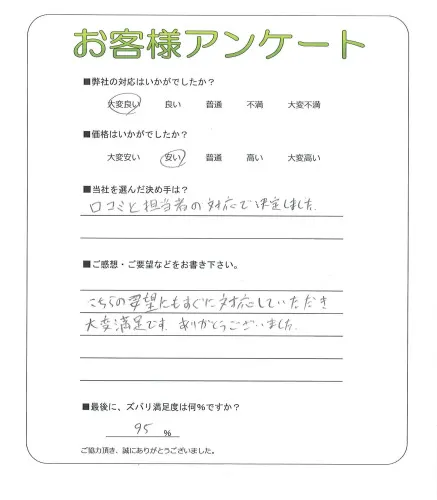 お客様アンケート
■弊社の対応はいかがでしたか？
大変良い 良い 普通 不満 大変不満
■価格はいかがでしたか？
大変安い 安い 普通 高い 大変高い
■当社を選んだ決め手は？
口コミと担当者の対応で決定しました.
■ご感想・ご要望などをお書き下さい。
こちらの要望にもすぐに対応していただき
大変満足です. ありがとうございました.
■最後に、ズバリ満足度は何％ですか？
95 ％
ご協力頂き、誠にありがとうございました。